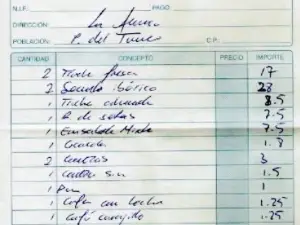 N.I.F. PAGO
DIRECCIÓN:
POBLACIÓN: P. del
C.P.
CANTIDAD CONCEPTO PRECIO IMPORTE
2 fresca 17
2 Secreto ibérico 28
1 ahumada 8.5
1 R de setas 7.5
1 Ensalada Mixta 7.5
1 Cocacola 1.8
2 3
1 sin 1.5
1 Pan 1
1 Café con leche 1.25
1 Café 1.25